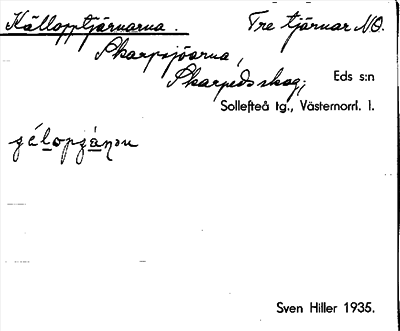 Källopptjärnarna. Tre tjärnar NO.
Skarpsjöarna,
Skarpedsskog; Eds s:n
Sollefteå tg., Västernorrl. l.
Sven Hiller 1935.